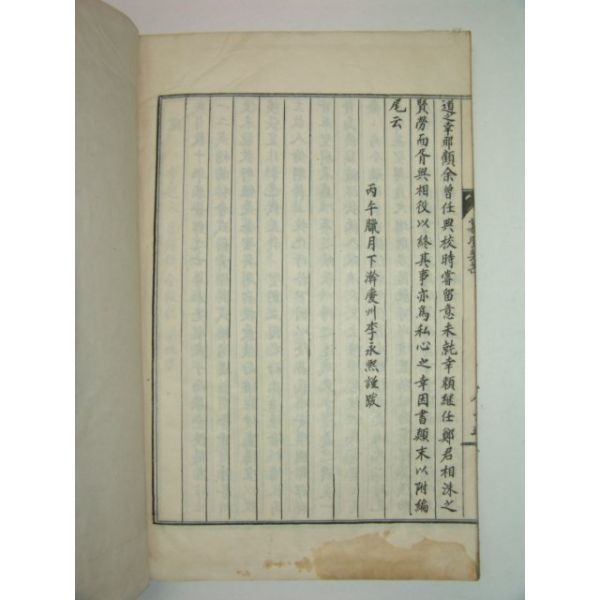 導之幸那顧余曾任興校時嘗留意未就幸賴継任鄭君相洙之
賢勞而胥與相役以終其事亦爲私心之幸因書顚末以附編
尾云
丙午臘月下澣慶州李永熙謹跋